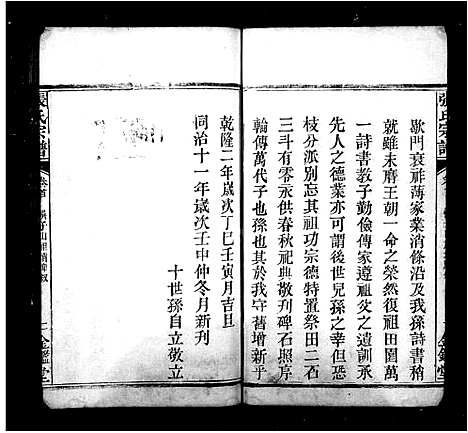 張氏宗譜
歇門衰祚薄家業消條沿及我孫詩書稍
就雖未磨王朝一命之榮然復祖田園萬
一詩書教子勤儉傳家遵祖父之遺訓承
先人之德業亦可謂後世兒孫之幸但恐
枝分派別忘其祖功宗德特置祭田二石
三斗有零永供春秋祀典敬刊碑石照序
輪傳萬代子也孫也其於我守舊增新乎
乾隆二年歲次丁巳壬寅月吉旦
同治十一年歲次壬申仲冬月新刊
十世孫自立敬立
張氏宗譜
卷首
金鑑堂